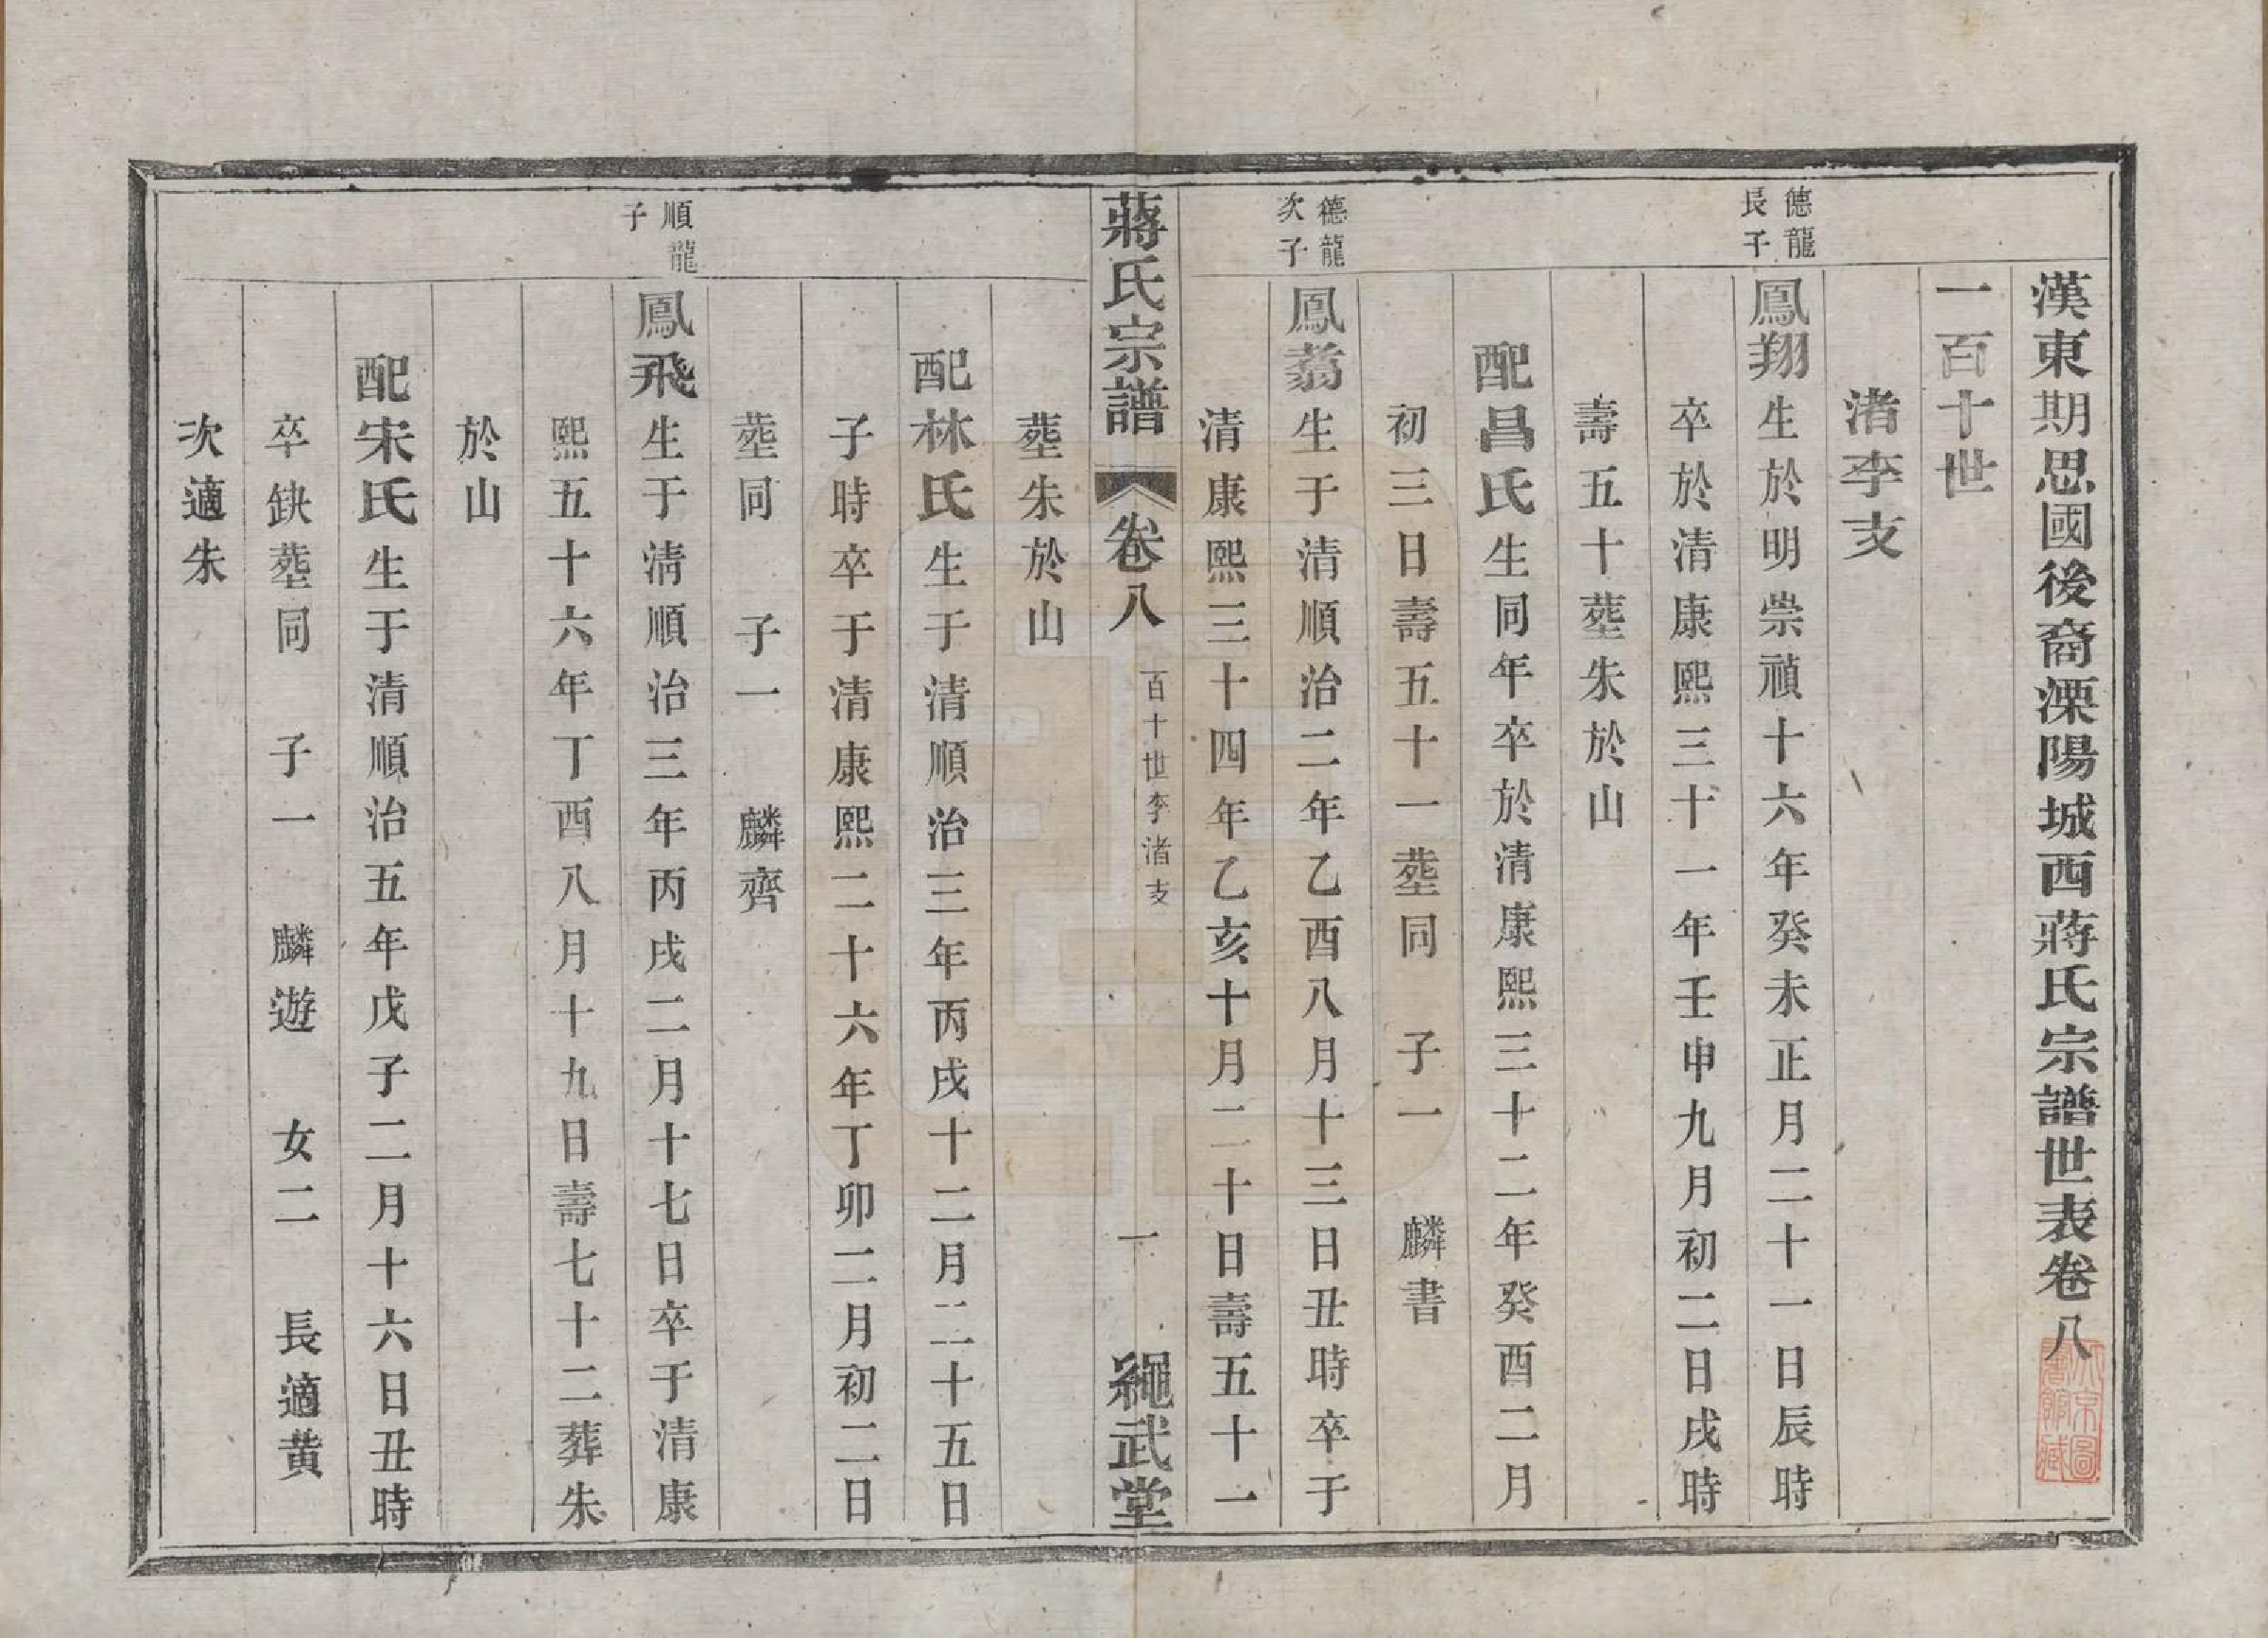 漢東期思國後裔溧陽城西蔣氏宗譜世表卷八
一百十世
渚李支
德龍
長子
鳳翔生於明崇禎十六年癸未正月二十一日辰時
卒於清康熙三十一年壬申九月初二日戌時
壽五十塟朱於山
配昌氏生同年卒於清康熙三十二年癸酉二月
初三日壽五十一塟同 子一 麟書
德龍
次子
鳳翥生于清順治二年乙酉八月十三日丑時卒于
清康熙三十四年乙亥十月二十日壽五十一
蔣氏宗譜 卷八 百十世李渚支 一 繩武堂
塟朱於山
配林氏生于清順治三年丙戌十二月二十五日
子時卒于清康熙二十六年丁卯二月初二日
塟同 子一 麟齊
順龍
子
鳳飛生于清順治三年丙戌二月十七日卒于清康
熙五十六年丁酉八月十九日壽七十二葬朱
於山
配宋氏生于清順治五年戊子二月十六日丑時
卒缺塟同 子一 麟遊 女二 長適黄
次適朱
北京圖
書館藏